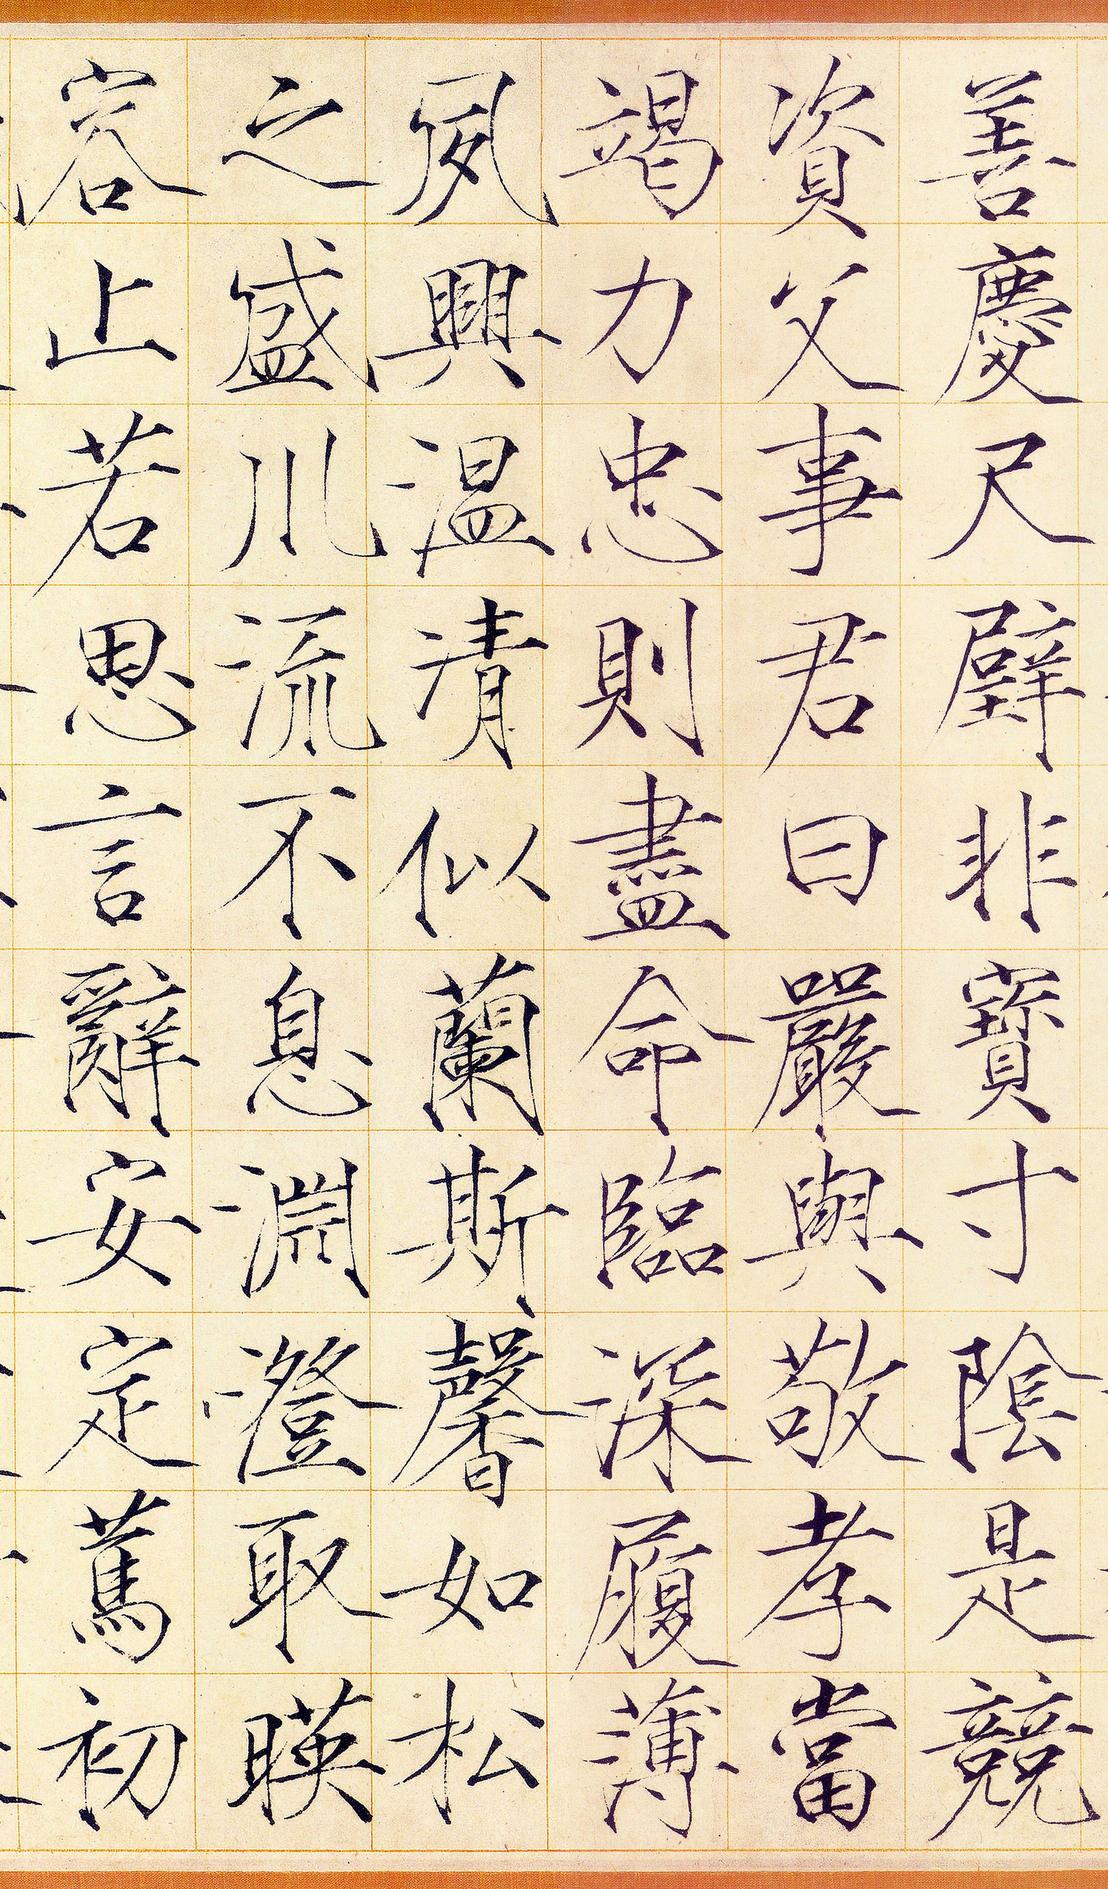 善慶尺璧非寶寸陰是競
資父事君曰嚴與敬孝當
竭力忠則盡命臨深履薄
夙興温清似蘭斯馨如松
之盛川流不息淵澄取暎
容止若思言辭安定篤初